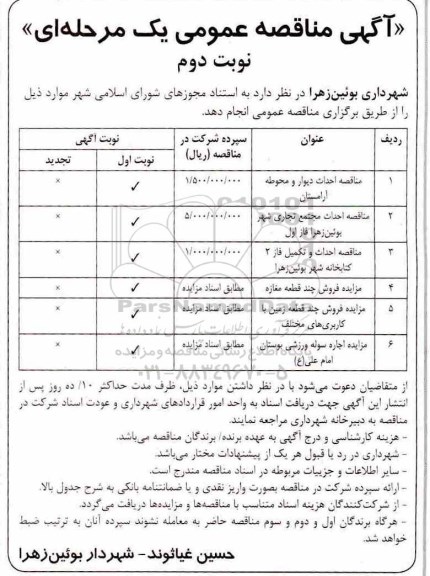 «آگهی مناقصه عمومی یک مرحله‌ای»
نوبت دوم
شهرداری بوئین‌زهرا در نظر دارد به استناد مجوزهای شورای اسلامی شهر موارد ذیل
را از طریق برگزاری مناقصه عمومی انجام دهد.
ردیف عنوان سپرده شرکت در مناقصه (ریال) نوبت آگهی
نوبت اول تجدید
۱ مناقصه احداث دیوار و محوطه ۱/۵۰۰/۰۰۰/۰۰۰ ✓ ×
آرامستان
۲ مناقصه احداث مجتمع تجاری شهر ۵/۰۰۰/۰۰۰/۰۰۰ ✓ ×
بوئین‌زهرا فاز اول
۳ مناقصه احداث و تکمیل فاز ۲ ۱/۰۰۰/۰۰۰/۰۰۰ ✓ ×
کتابخانه شهر بوئین‌زهرا
۴ مزایده فروش چند قطعه مغازه مطابق اسناد مزایده ✓ ×
۵ مزایده فروش چند قطعه زمین با مطابق اسناد مزایده ✓ ×
کاربری‌های مختلف
۶ مزایده اجاره سوله ورزشی بوستان مطابق اسناد مزایده ✓ ×
امام علی(ع)
ParsNamadData
۰۲۱-۸۸۳۴۹۶۷۰-۵
از متقاضیان دعوت می‌شود با در نظر داشتن موارد ذیل، ظرف مدت حداکثر ۱۰/ ده روز پس از
انتشار این آگهی جهت دریافت اسناد به واحد امور قراردادهای شهرداری و عودت اسناد شرکت در
مناقصه به دبیرخانه شهرداری مراجعه نمایند.
- هزینه کارشناسی و درج آگهی به عهده برنده/ برندگان مناقصه می‌باشد.
- شهرداری در رد یا قبول هر یک از پیشنهادات مختار می‌باشد.
- سایر اطلاعات و جزییات مربوطه در اسناد مناقصه مندرج است.
- ارائه سپرده شرکت در مناقصه بصورت واریز نقدی و یا ضمانتنامه بانکی به شرح جدول بالا.
- از شرکت‌کنندگان هزینه اسناد متناسب با مناقصه‌ها و مزایده‌ها دریافت می‌گردد.
- هرگاه برندگان اول و دوم و سوم مناقصه حاضر به معامله نشوند سپرده آنان به ترتیب ضبط
خواهد شد.
حسین غیاثوند - شهردار بوئین‌زهرا